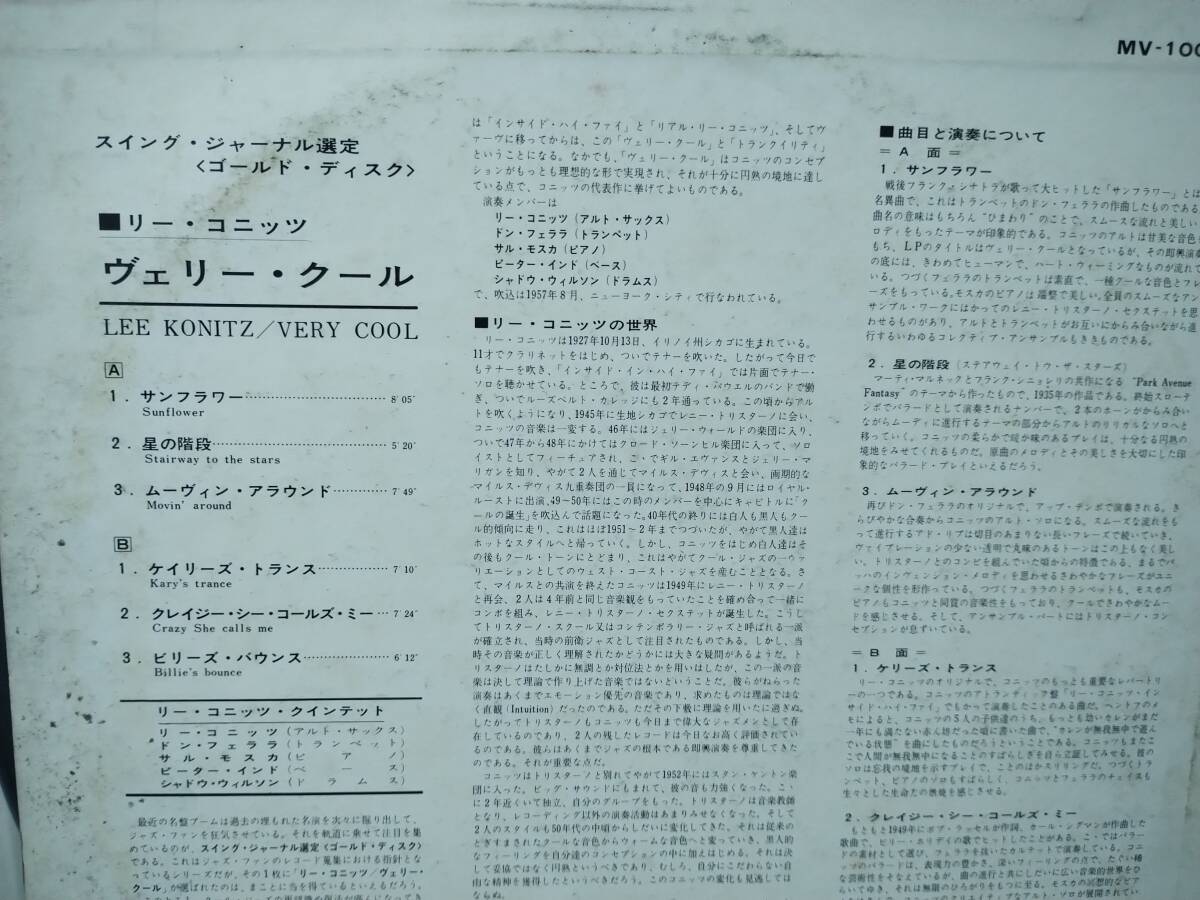 MV-100
スイング・ジャーナル選定
〈ゴールド・ディスク〉
■リー・コニッツ
ヴェリー・クール
LEE KONITZ/VERY COOL
A
1. サンフラワー 8′05″
Sunflower
2. 星の階段 5′20″
Stairway to the stars
3. ムーヴィン・アラウンド 7′49″
Movin' around
B
1. ケイリーズ・トランス 7′10″
Kary's trance
2. クレイジー・シー・コールズ・ミー 7′24″
Crazy She calls me
3. ビリーズ・バウンス 6′12″
Billie's bounce
リー・コニッツ・クインテット
リー・コニッツ(アルト・サックス)
ドン・フェララ(トランペット)
サル・モスカ(ピアノ)
ピーター・インド(ベース)
シャドウ・ウィルソン(ドラムス)
最近の名盤ブームは過去の埋もれた名演を次々に掘り出して、
ジャズ・ファンを狂気させている。それを軌道に乗せて注目を集
めているのが、スイング・ジャーナル選定〈ゴールド・ディスク〉
である。これはジャズ・ファンのレコード蒐集における指針とな
っているシリーズだが、その1枚に「リー・コニッツ/ヴェリー・
クール」が選ばれたのは、まことに当を得ているといえるだろう。
は「インサイド・ハイ・ファイ」と「リアル・リー・コニッツ」、そしてヴ
ァーヴに移ってからは、この「ヴェリー・クール」と「トランクイリティ」
ということになる。なかでも、「ヴェリー・クール」はコニッツのコンセプ
ションがもっとも理想的な形で実現され、それが十分に円熟の境地に達し
ている点で、コニッツの代表作に挙げてよいものである。
演奏メンバーは
リー・コニッツ(アルト・サックス)
ドン・フェララ(トランペット)
サル・モスカ(ピアノ)
ピーター・インド(ベース)
シャドウ・ウィルソン(ドラムス)
で、吹込は1957年8月、ニューヨーク・シティで行なわれている。
■リー・コニッツの世界
リー・コニッツは1927年10月13日、イリノイ州シカゴに生まれている。
11才でクラリネットをはじめ、ついでテナーを吹いた。したがって今日で
もテナーを吹き、「インサイド・イン・ハイ・ファイ」では片面でテナー・
ソロを聴かせている。ところで、彼は最初テディ・パウエルのバンドで働
き、ついでルーズベルト・カレッジにも2年通っている。この頃からアル
トを吹くようになり、1945年に生地シカゴでレニー・トリスターノに会い、
コニッツの音楽は一変する。46年にはジェリー・ウォールドの楽団に入り、
ついで47年から48年にかけてはクロード・ソーンヒル楽団に入って、ソロ
イストとしてフィーチュアされ、こゝでギル・エヴァンスとジェリー・マ
リガンを知り、やがて2人を通じてマイルス・デヴィスと会い、画期的な
マイルス・デヴィス九重奏団の一員になって、1948年の9月にはロイヤル・
ルーストに出演、49〜50年にはこの時のメンバーを中心にキャピトルに「ク
ールの誕生」を吹込んで話題になった。40年代の終りには白人も黒人もクー
ル的傾向に走り、これはほぼ1951〜2年までつづいたが、やがて黒人達は
ホットなスタイルへと帰っていく。しかし、コニッツをはじめ白人達はそ
の後もクール・トーンにとどまり、これはやがてクール・ジャズのーヴァ
リエーションとしてのウェスト・コースト・ジャズを産むこととなる。さ
て、マイルスとの共演を終えたコニッツは1949年にレニー・トリスターノ
と再会、2人は4年前と同じ音楽観をもっていたことを確め合って一緒に
コンボを組み、レニー・トリスターノ・セクステットが誕生した。こうし
てトリスターノ・スクール又はコンテンポラリー・ジャズと呼ばれる一派
が確立され、当時の前衛ジャズとして注目されたものである。しかし、当
時その音楽が正しく理解されたかどうかには大きな疑問があるようだ。ト
リスターノはたしかに無調とか対位法とかを用いはしたが、この一派の音
楽は決して理論で作り上げた音楽ではないということだ。彼らがねらった
演奏はあくまでエモーション優先の音楽であり、求めたものは理論ではな
く直観(Intuition)だったのである。ただその下敷に理論を用いたに過ぎぬ。
したがってトリスターノもコニッツも今日まで偉大なジャズメンとして存
在しているのであり、2人の残したレコードは今日なお高く評価されてい
るのである。彼らはあくまでジャズの根本である即興演奏を尊重してきた
のである。それが重要な点だ。
コニッツはトリスターノと別れてやがて1952年にはスタン・ケントン楽
団に入った。ビッグ・サウンドにもまれて、彼の音も力強くなった。こゝ
に2年近くいて独立、自分のグループをもった。トリスターノは音楽教師
となり、レコーディング以外の演奏活動はあまりみせなくなった。そして
2人のスタイルも50年代の中頃からしだいに変化してきた。それは従来の
とぎすまされたクールな音色からウォームな音色へと変っていき、黒人的
なフィーリングを自分達のコンセプションの中に加えはじめる。それは決
して妥協ではなく円熟というべきであり、むしろ、自分にこだわらない自
由な精神を獲得したというべきだろう。このコニッツの変化も見逃しては
ならぬ。
■曲目と演奏について
= A 面 =
1. サンフラワー
戦後フランク・シナトラが歌って大ヒットした「サンフラワー」とは
名異曲で、これはトランペットのドン・フェララの作曲したものである
曲名の意味はもちろん“ひまわり”のことで、スムースな流れと美しい
ロディをもったテーマが印象的である。コニッツのアルトは甘美な音色を
もち、LPのタイトルはヴェリー・クールとなっているが、その即興演奏
の底には、きわめてヒューマンで、ハート・ウォーミングなものが流れて
いる。つづくフェララのトランペットは素直で、一種クールな音色とフレ
ーズをもっている。モスカのピアノは端整で美しい。全員のスムーズなアン
サンブル・ワークにはかつてのレニー・トリスターノ・セクステットを思
わせるものがあり、アルトとトランペットがお互いにからみ合いながら進
行するいわゆるコレクティブ・アンサンブルもききものである。
2. 星の階段(ステアウェイ・トゥ・ザ・スターズ)
マーティ・マルネックとフランク・シニョレリの共作になる“Park Avenue
Fantasy”のテーマから作ったもので、1935年の作品である。終始スローテ
ンポでバラードとして演奏されるナンバーで、2本のホーンがからみ合い
ながらムーディに進行するテーマの部分からアルトのリリカルなソロへと
移っていく。コニッツの柔らかで暖か味のあるプレイは、十分なる円熟の
境地をみせてくれるものだ。原曲のメロディとその美しさを大切にした印
象的なバラード・プレイといえるだろう。
3. ムーヴィン・アラウンド
再びドン・フェララのオリジナルで、アップ・テンポで演奏される。き
らびやかな合奏からコニッツのアルト・ソロになる。スムーズな流れをも
って進行するアド・リブは切目のあまりない長いフレーズで続いていき、
ヴァイブレーションの少ない透明で丸味のあるトーンはこの上もなく美し
い。トリスターノとのコンビを組んでいた頃からの特徴である、まるでバ
ッハのインヴェンション・メロディを思わせるさわやかなフレーズがユニ
ークな個性を形作っている。つづくフェララのトランペットも、モスカの
ピアノもコニッツと同質の音楽性をもっており、クールでさわやかなムー
ドを感じさせる。そして、アンサンブル・パートにはトリスターノ・コン
セプションが息ずいている。
= B 面 =
1. ケリーズ・トランス
リー・コニッツのオリジナルで、コニッツのもっとも重要なレパートリ
ーの一つである。コニッツのアトランティック盤「リー・コニッツ・イン
サイド・ハイ・ファイ」でもかつて演奏したことのある曲だ。ヘントフのメ
モによると、コニッツの5人の子供達のうち、もっとも幼いカレンがまだ
一年にも満たない赤ん坊だった頃に書いた曲で、“カレンが無我無中で遊ん
でいる状態”を曲にしたものだろうということである。コニッツもまたこ
こで人間が無我無中になることのすばらしさを自ら立証してみせる。彼の
ソロは忘我の境地を示すプレイで、ことのほかスリリングだ。つづくトラ
ンペット、ピアノのソロもすばらしく、コニッツとフェララのチェイスも
生々とした生命だの燃焼を感じさせる。
2. クレイジー・シー・コールズ・ミー
もともと1949年にボブ・ラッセルが作詞、カール・シグマンが作曲した
歌曲で、ビリー・ホリデイの歌でヒットしたことがある。